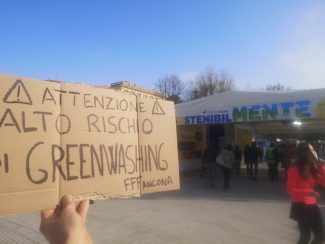 ⚠ ATTENZIONE ⚠
ALTO RISCHIO
DI GREENWASHING
FFF ANCONA
SOSTENIBILMENTE